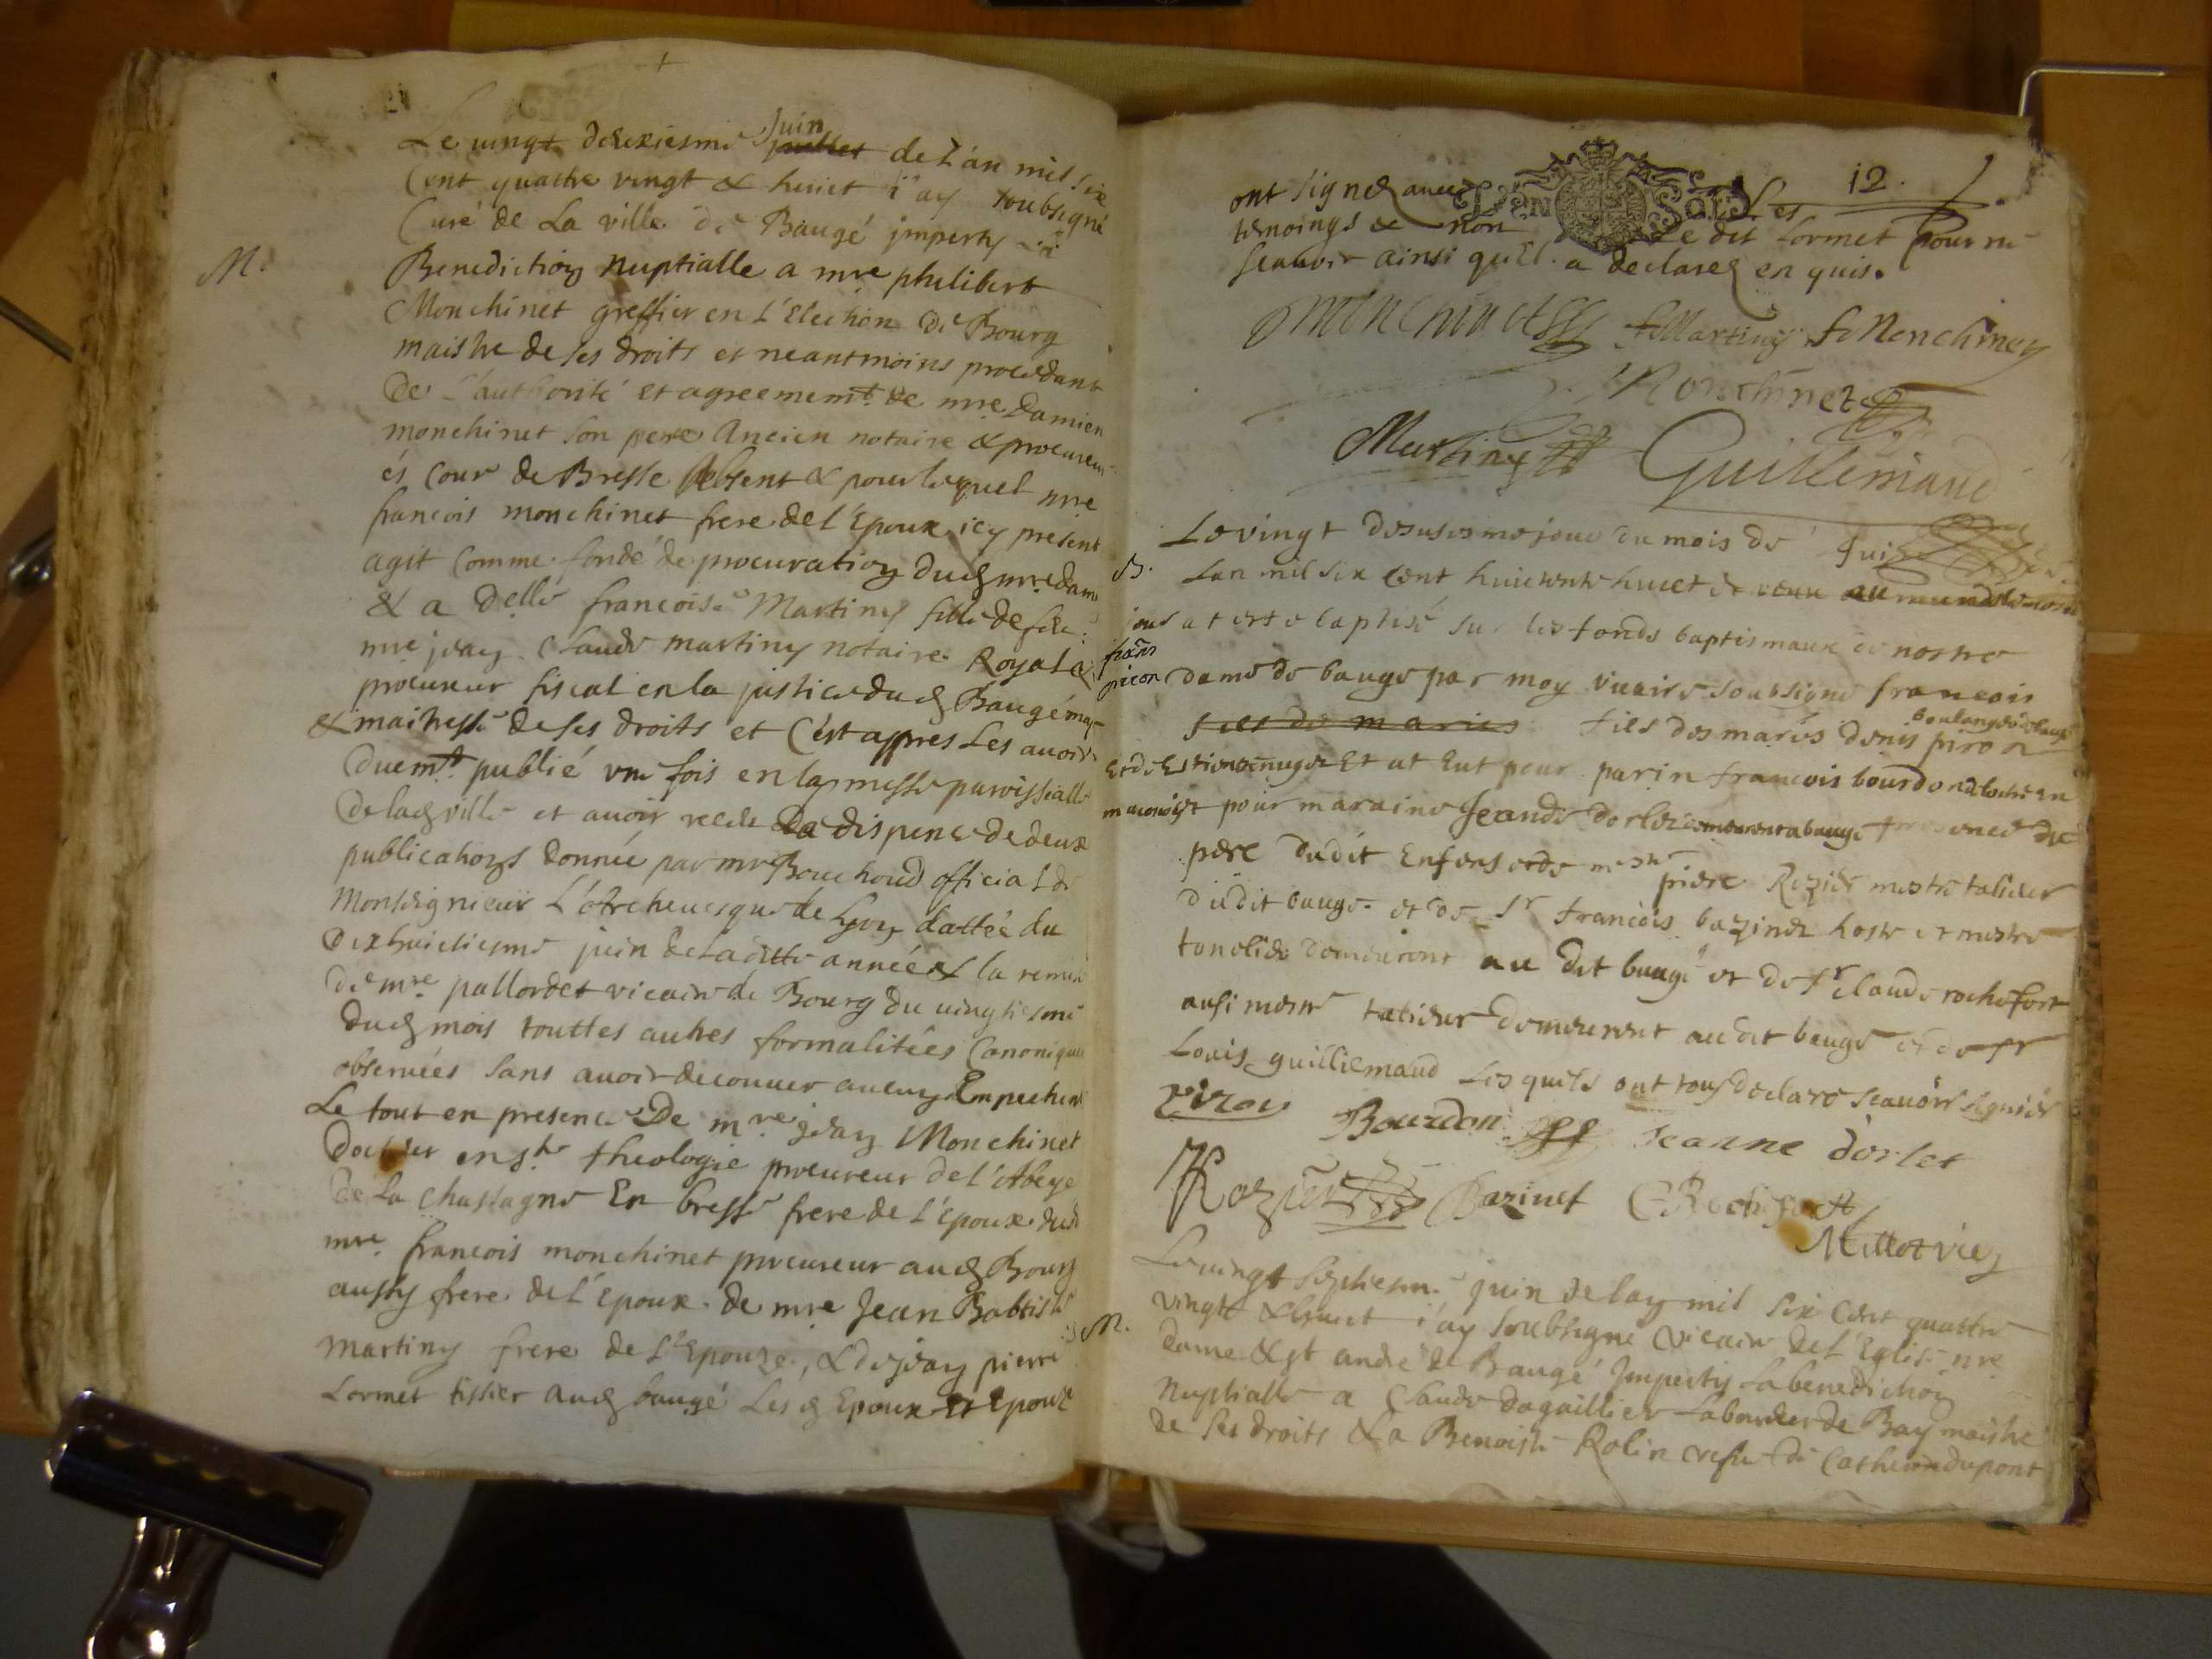 Le vingt deuxiesme Juin juillet de L'an mil six
Cent quattre vingt & huict i'ay soubsigné
Curé de La ville de Baugé imparty La
M.
Benediction nuptialle a mre philibert
Monchinet greffier en L'Election de Bourg
maistre de ses droits et neantmoins procedant
De L'authorité et agreemt. de mre Damien
monchinet son pere Ancien notaire & procureur
és Cour de Bresse Absent & pour lequel mre
francois monchinet frere de L'Epoux icy present
agit Comme fondé de procuration dud mre Dami
& a Delle francoise Martiny fille de feu
mre jean Claude martiny notaire Royal &
procureur fiscal en la justice dud Baugé maj
& maitresse de ses droits et C'est appres Les avoir
Duemt. publié une fois en la messe paroissialle
de lad ville et avoir receu La dispence de deux
publications donnée par mr Bouchoud official de
Monseigneur L'Archevesque de Lyon dattée du
dixhuictiesme juin de Laditte année & la remise
de mre pallordet vicaire de Bourg du vingtiesme
dud mois touttes autres formalitées Canoniques
observées sans avoir decouvert aucun Empechemt
Le tout en presence De mre jean Monchinet
Docteur en ste theologie procureur de L'Abeye
De La Chassagne En bresse frere de L'époux dud
mre. francois monchinet procureur aud Bourg
aussy frere de L'époux de mre Jean Babtiste
martiny frere de L'Epouze, & de jean pierre
Lormet tissier aud baugé Les d Epoux Et Epouze
12.
ont signez avec Les
VEN SOLS
temoings & non Le dit Lormet pour ne
scavoir ainsi qu'Il a declarez enquis.
Monchinet Martiny f Monchinet
Monchinet
Martiny Guillemaud
Le vingt deusiesme jour du mois de Juin
B.
Lan mil six cent huictente huict et venu au monde le mesme
jour at esté baptisé sur les fonds baptismaux de nostre
fran piron
dame de bauge par moy vicaire soubsigné francois
boulanger de bauge
fils de maries fils des mariés denis piron
Et at Eut pour parin francois bourdon
pour maraine Jeande dorlet presence du
pere dudit Enfens et de mestre piere Rozier mestre talieur
dudit bauge et de sr francois bazinet hoste et mestre
tonelier demeurent au dit baugé et de sr claude rochefort
ausi mestre talieur demeurent au dit bauge et de sr
Louis guilliemaud Lesquels ont tous declaré scavoir signer
piron Bourdon Jeanne dorlet
Rozier Bazinet C Rochefort
Millot vic
Le vingt septiesme juin de Lan mil six Cent quattre
M.
vingt & huict i'ay soubsigné vicaire de L'Eglise nre
dame & st andré de Baugé Imparty La benediction
Nuptialle a Claude dagaillier Laboureur de Bay maistre
de ses droits & a Benoiste Rolin vefve de Catherin dupont